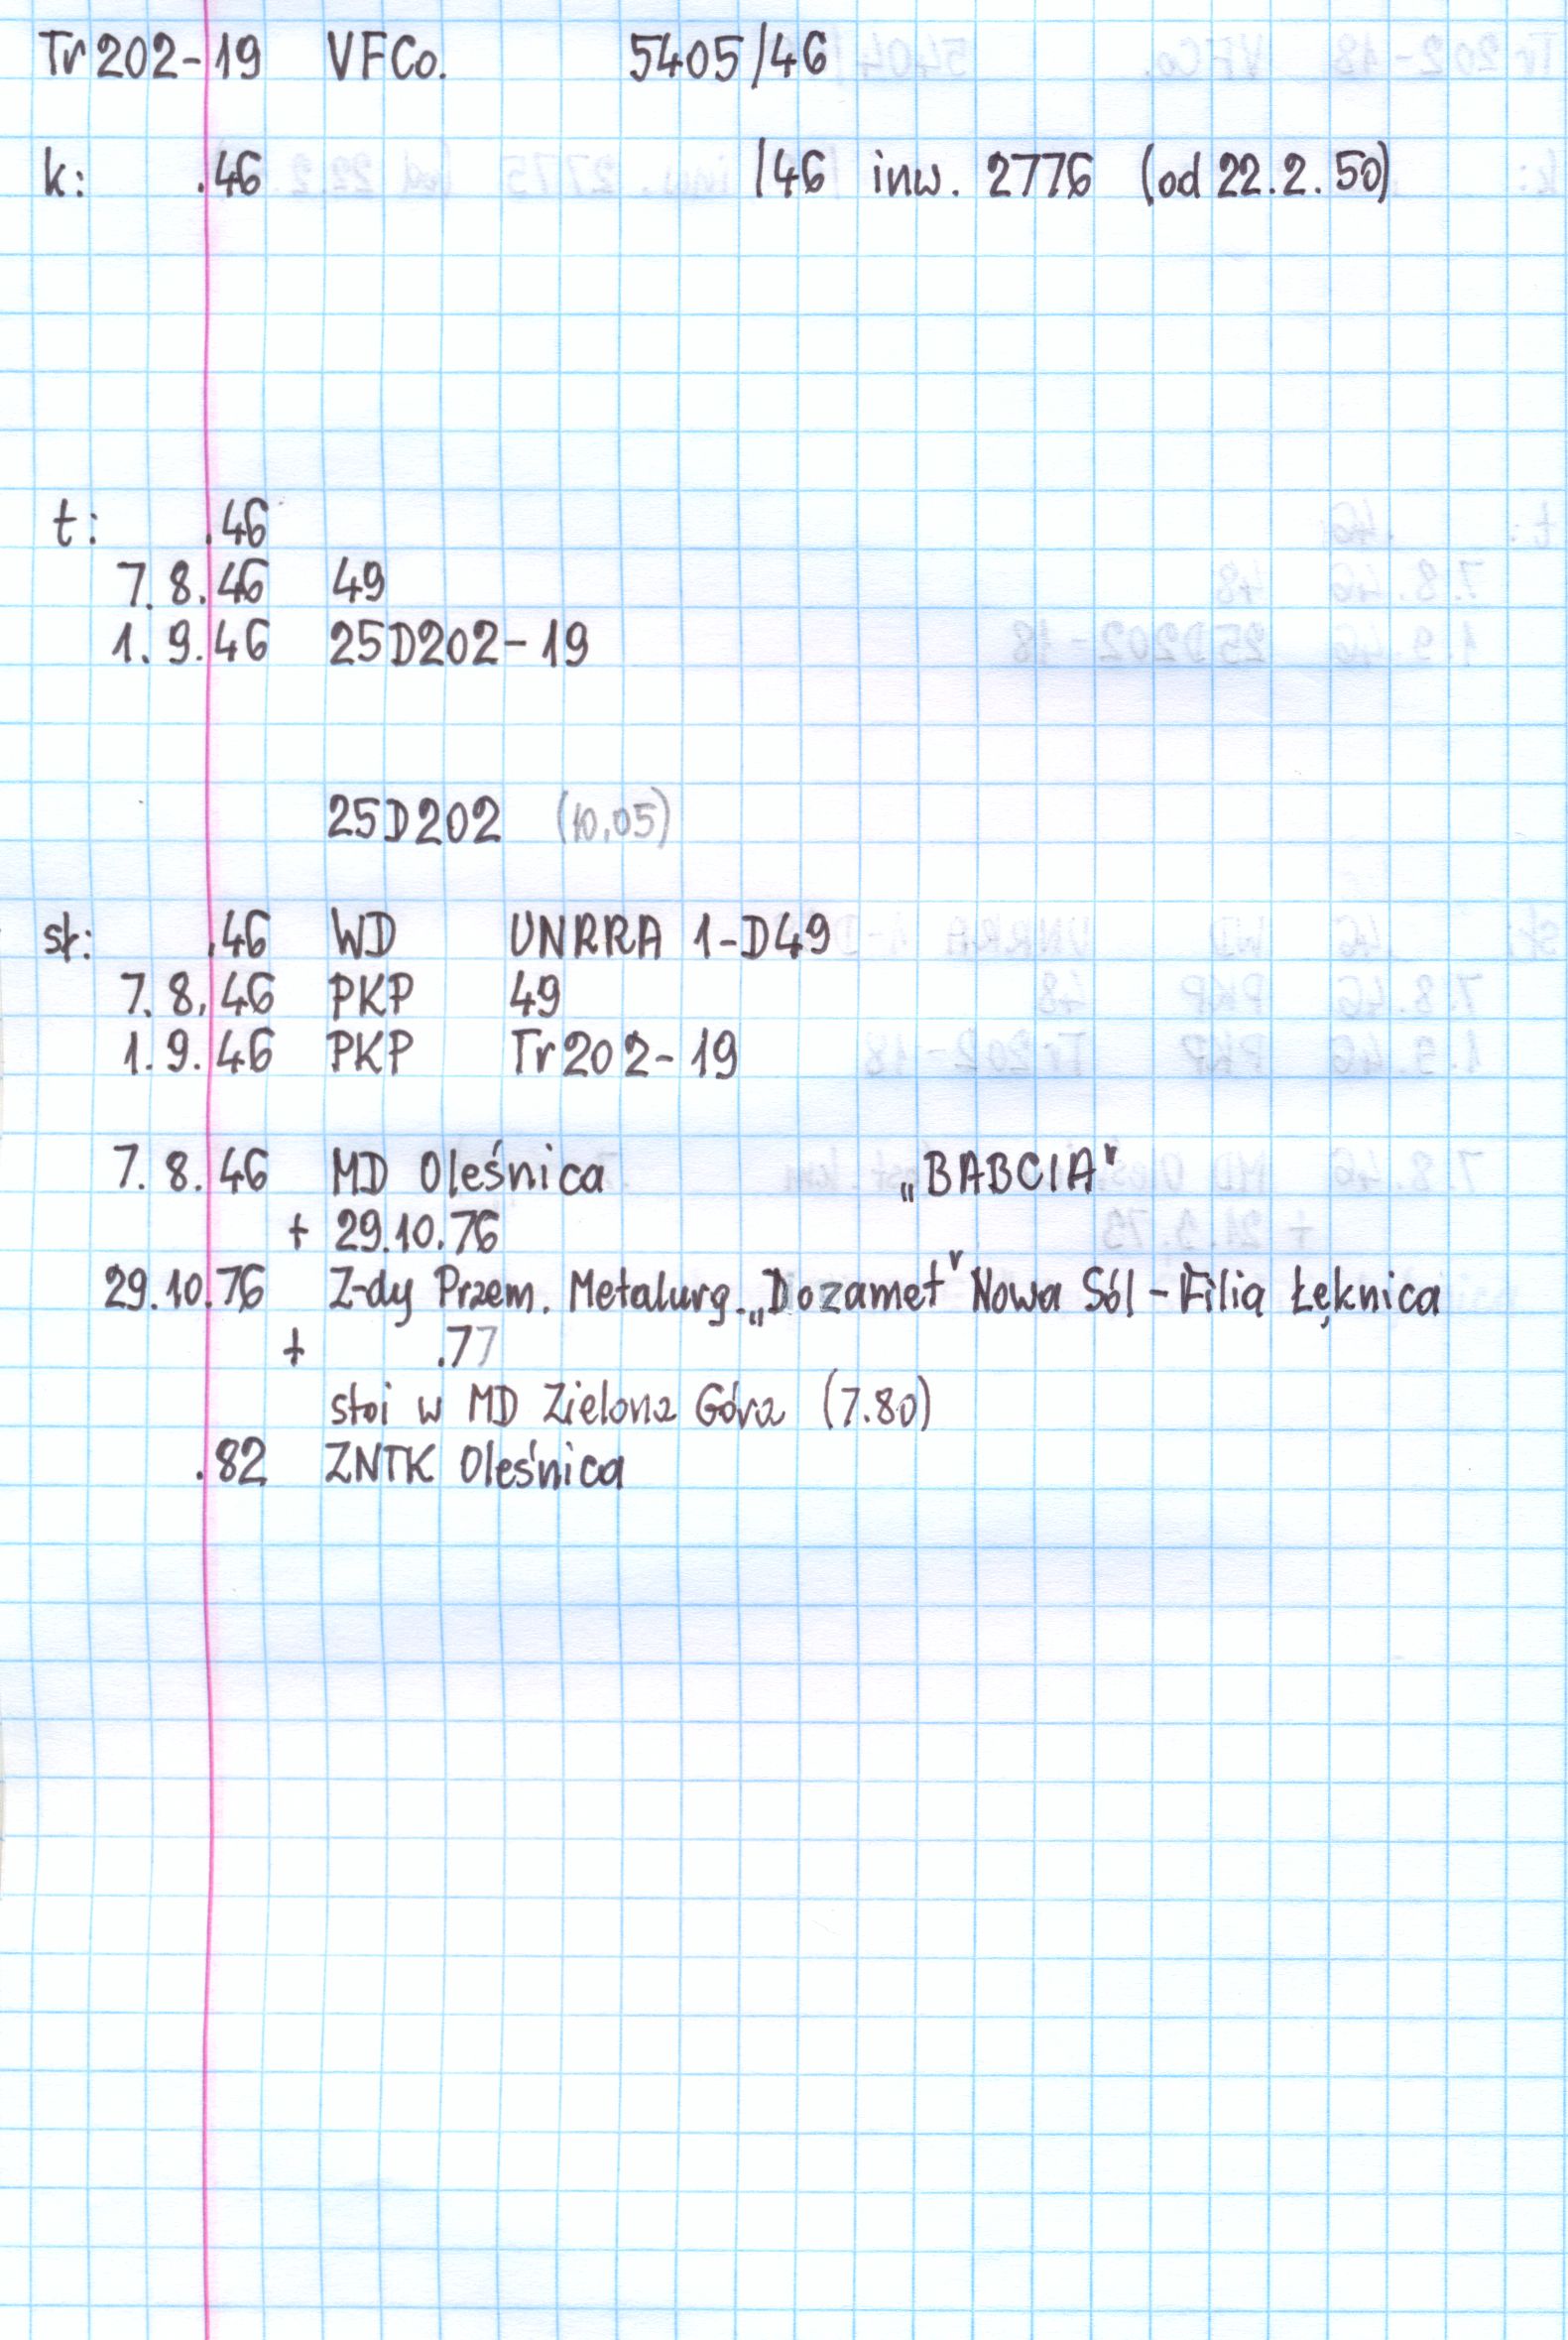 Tr202-19 VFCo. 5405/46
k: .46 /46 inw. 2776 (od 22.2.50)
t: .46
7.8.46 49
1.9.46 25D202-19
25D202 (10,05)
sł: .46 WD UNRRA 1-D49
7.8.46 PKP 49
1.9.46 PKP Tr202-19
7.8.46 MD Oleśnica „BABCIA"
+ 29.10.76
29.10.76 Z-dy Przem. Metalurg. „Dozamet" Nowa Sól - Filia Łęknica
+ .77
stoi w MD Zielona Góra (7.80)
.82 ZNTK Oleśnica